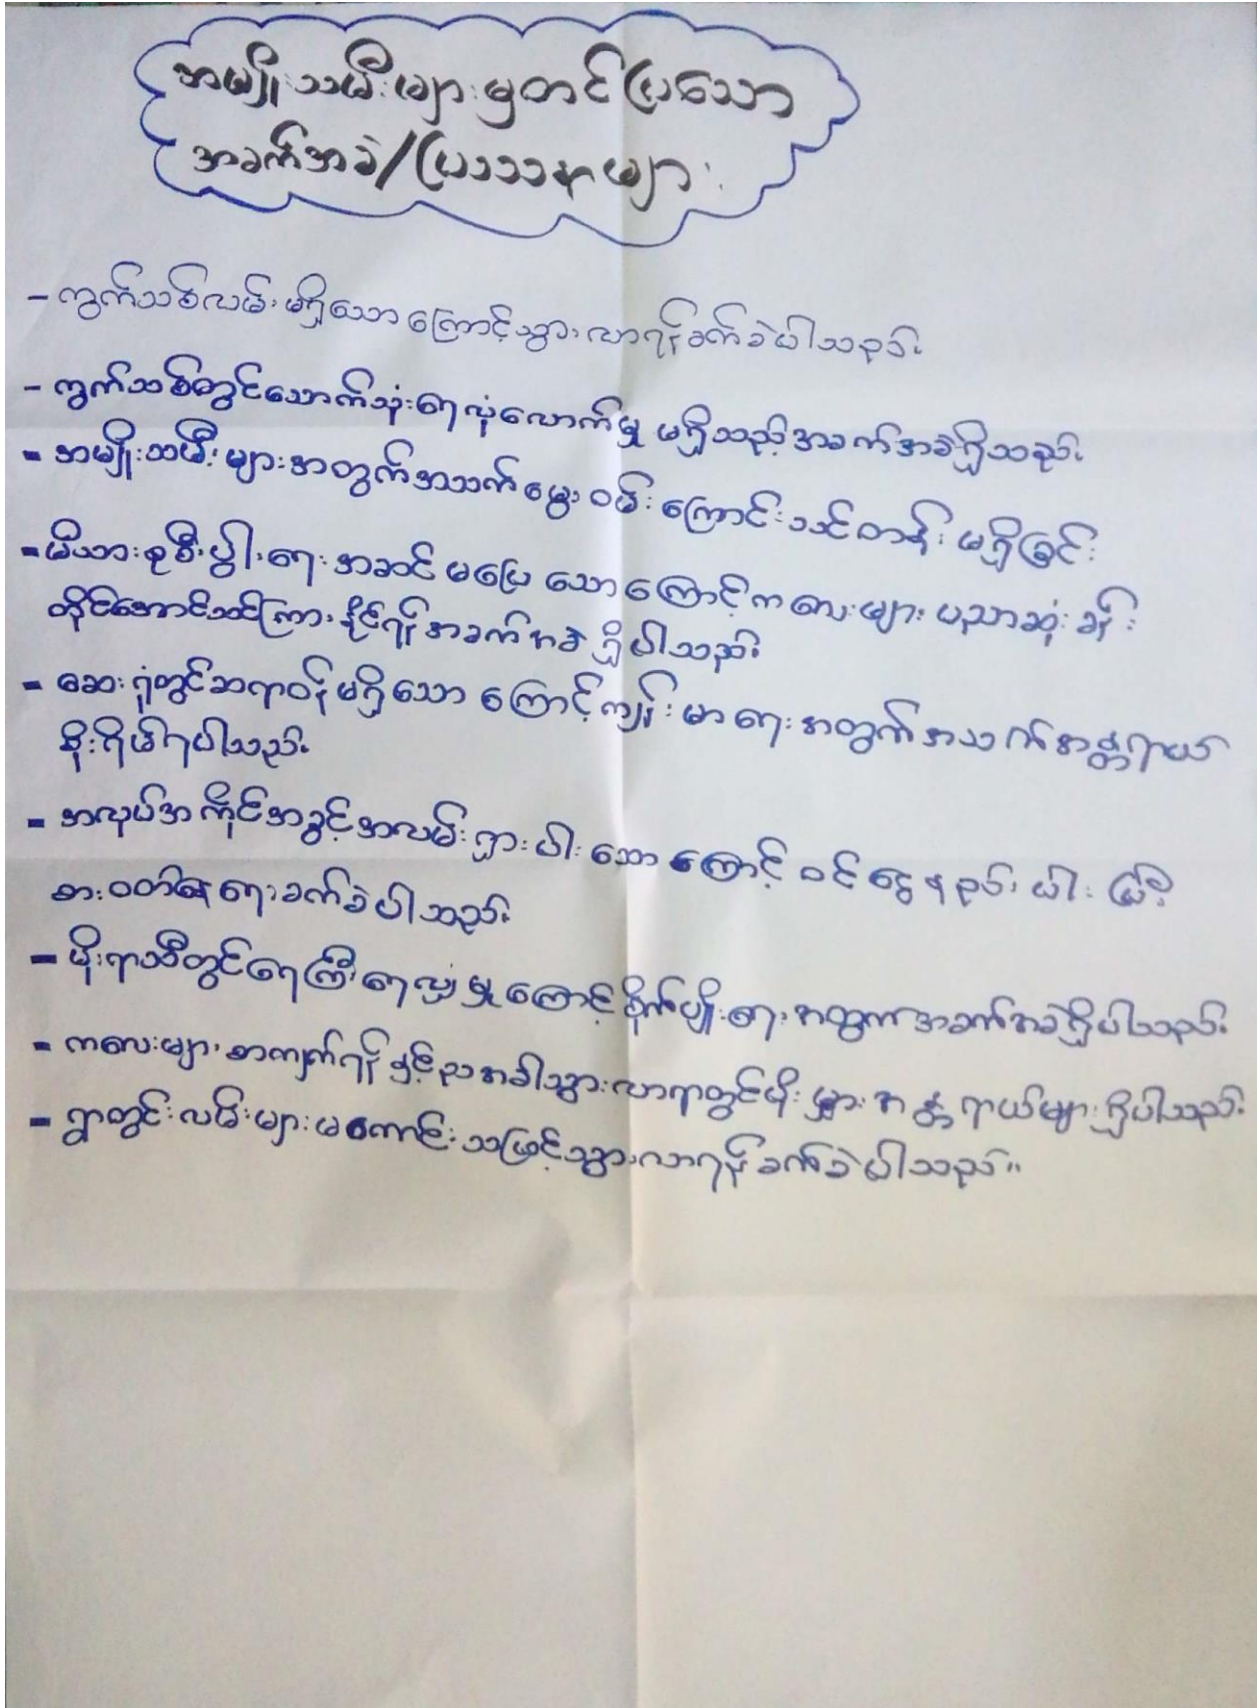 အမျိုးသမီးများမှတင်ပြသော
အခက်အခဲ/ပြဿနာများ
- ကွက်သစ်လမ်းမရှိသောကြောင့်သွားလာရန်ခက်ခဲပါသည်။
- ကွက်သစ်တွင်သောက်သုံးရေလုံလောက်မှု မရှိသည့်အခက်အခဲရှိသည်။
- အမျိုးသမီးများအတွက်အသက်မွေးဝမ်းကြောင်းသင်တန်းမရှိခြင်း
- မိသားစုစီးပွါးရေးအဆင်မပြေသောကြောင့်ကလေးများပညာဆုံးခန်း
တိုင်အောင်သင်ကြားနိုင်ရန်အခက်အခဲရှိပါသည်။
- ဆေးရုံတွင်ဆရာဝန်မရှိသောကြောင့်ကျန်းမာရေးအတွက်အသက်အန္တရာယ်
စိုးရိမ်ရပါသည်။
- အလုပ်အကိုင်အခွင့်အလမ်းရှားပါးသောကြောင့် ဝင်ငွေနည်းပါးပြီး
စားဝတ်နေရေးခက်ခဲပါသည်။
- မိုးရာသီတွင်ရေကြီးရေလျှံမှုကြောင့်စိုက်ပျိုးရေးအတွက်အခက်အခဲရှိပါသည်။
- ကလေးများစာကျက်ရန်နှင့်ညအခါသွားလာရာတွင်မီးမှားအန္တရာယ်များရှိပါသည်။
- ရွာတွင်းလမ်းများမကောင်းသဖြင့်သွားလာရန်ခက်ခဲပါသည်။